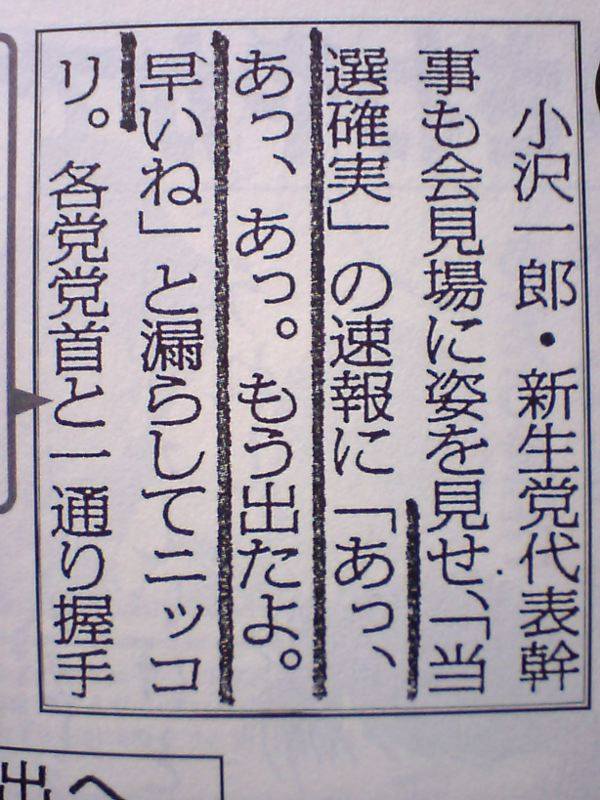 小沢一郎・新生党代表幹
事も会見場に姿を見せ、「当
選確実」の速報に「あっ、
あっ、あっ。もう出たよ。
早いね」と漏らしてニッコ
リ。各党党首と一通り握手
出へ